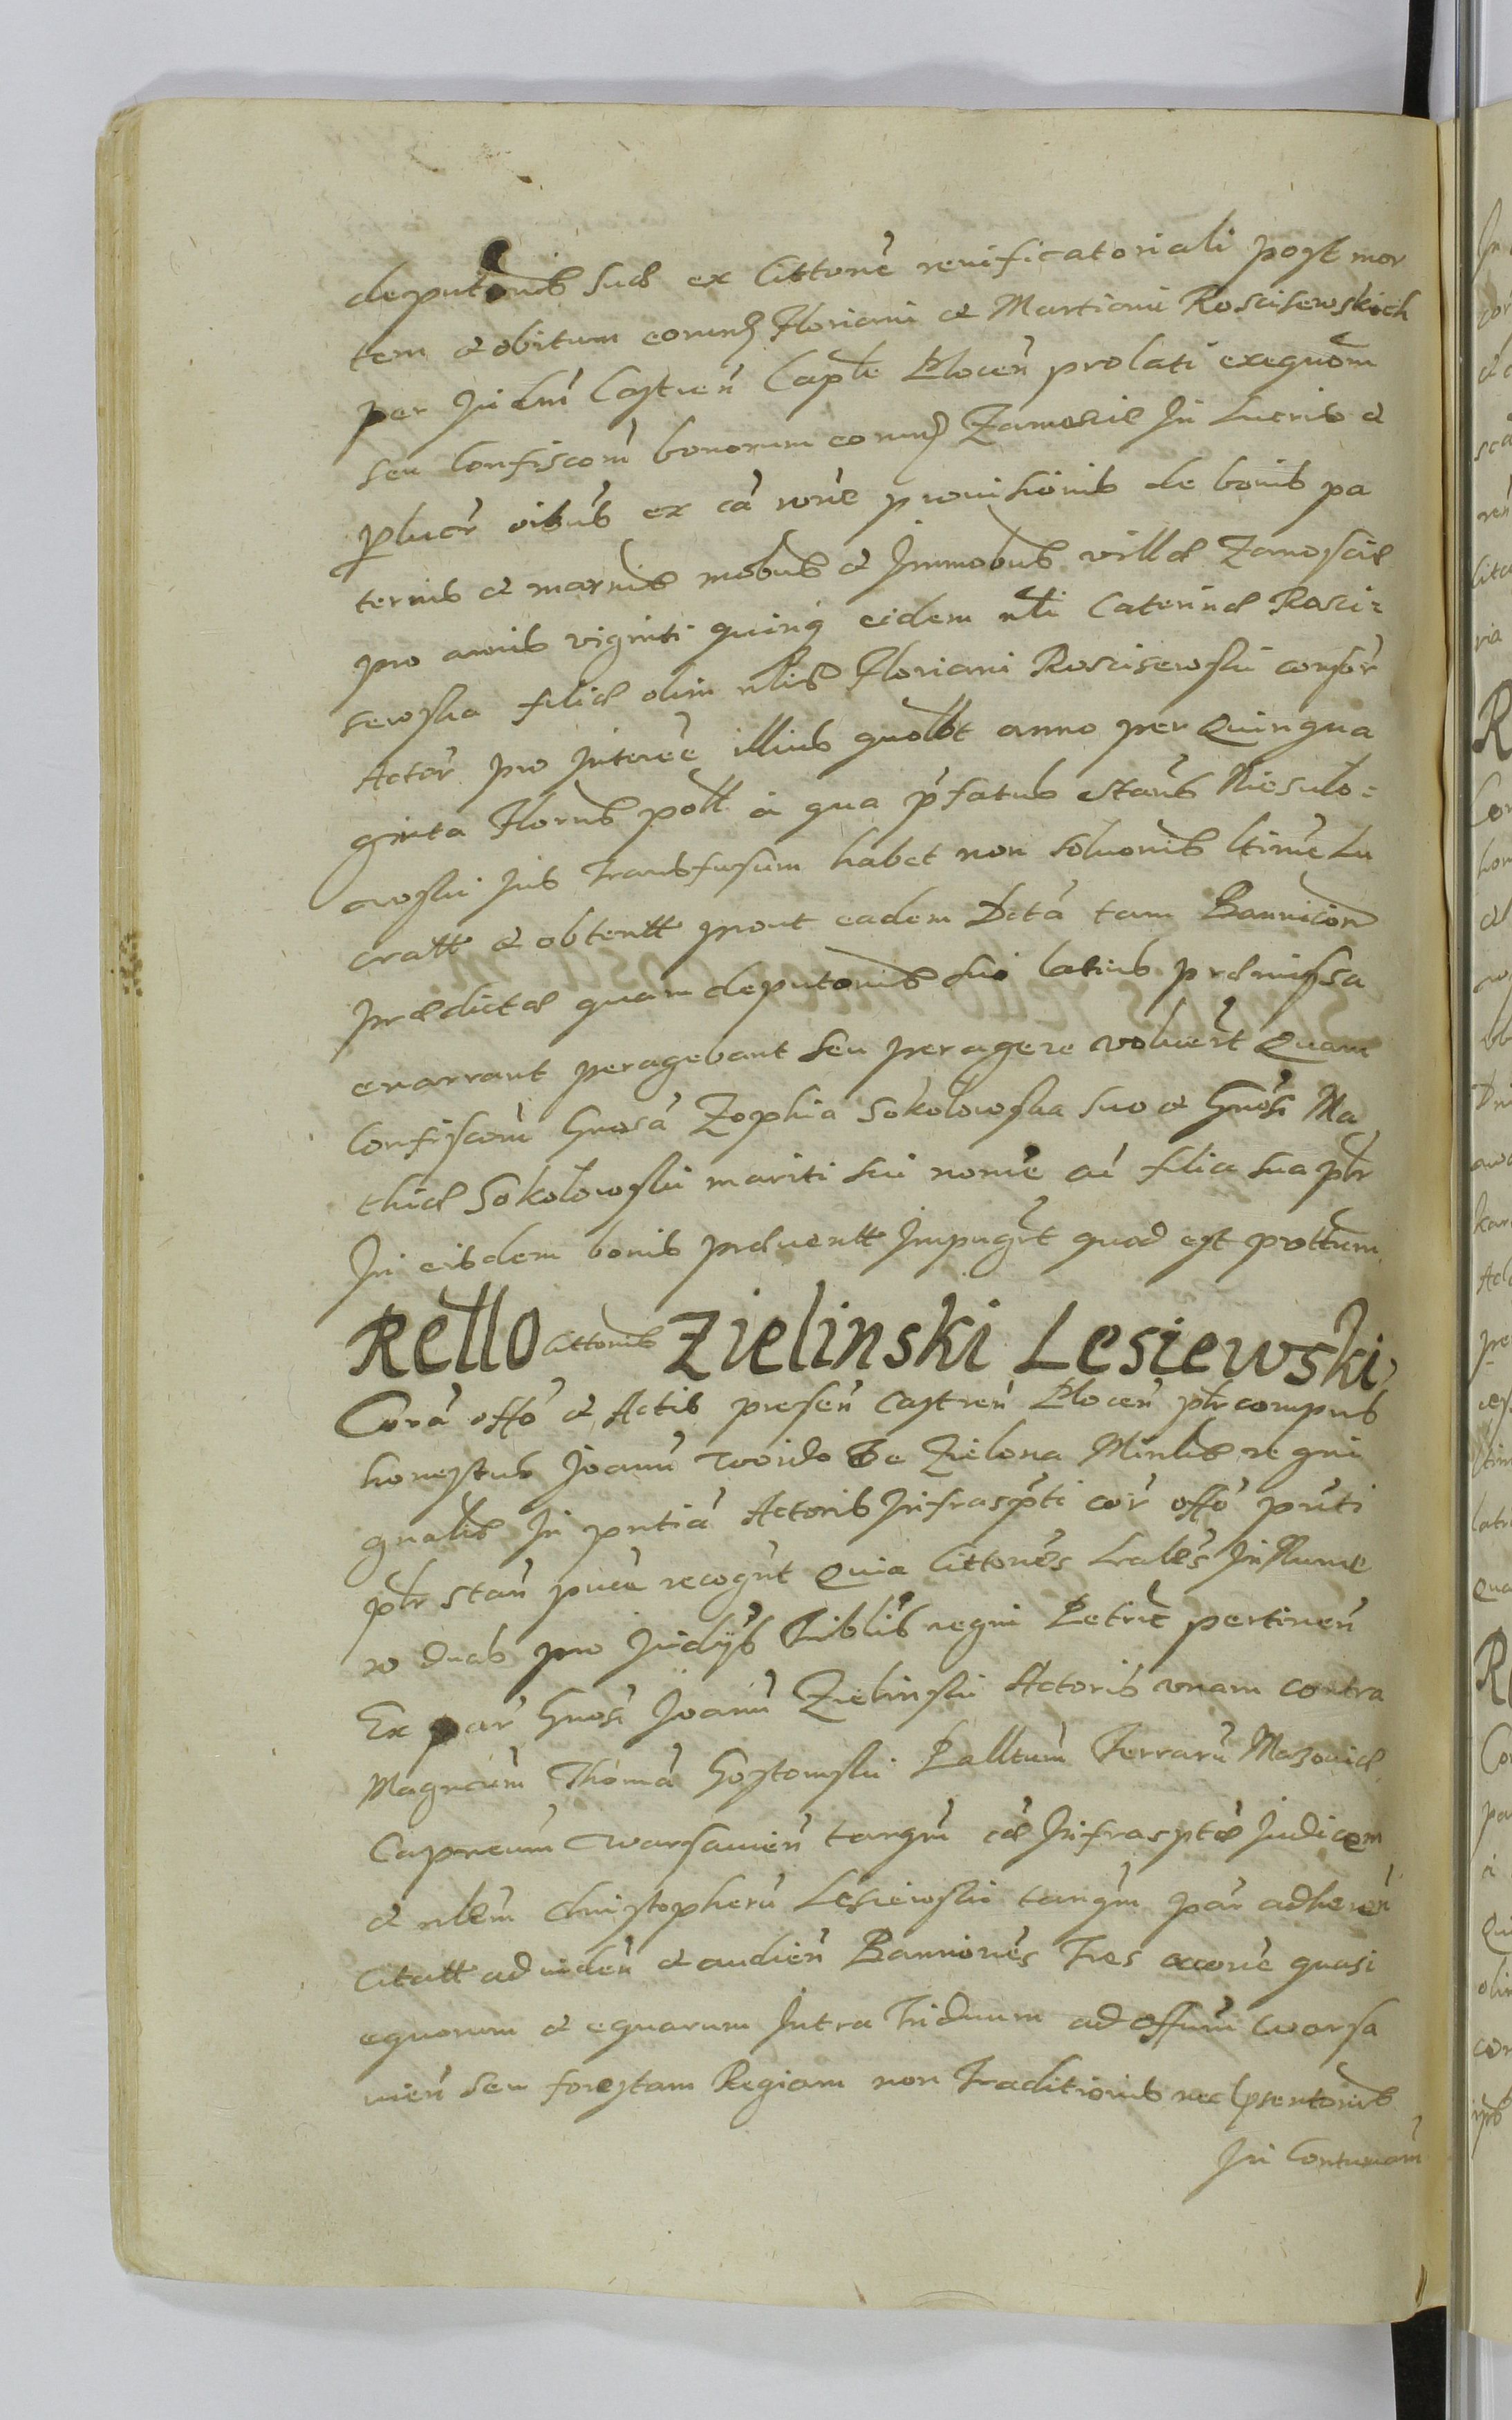 deputonis suae ex Cittone reuificatoriali post mor
tem & obitum eorund Floriani & Martiani Roscisewskich
per Judm Castren Caple Plocen prolati exequom
seu confiscom bonorum eorund Zamoscie In lucris &
plucr oibus ex ca rone prouisionis de bonis pa
ternis & marnis mobus & Immobus villae Zamoscie
pro annis viginti quinq eidem nli Caterinae Rosci=
sewska filiae olim nlis Floriani Roscisewski consor
Actor pro Interee illius quolbt anno per Quinqua
ginta Florns poll a qua pfatus Stans Niesulo=
wski Jus Transfusum habet non soluonis ltime lu
cratt & obtentt prout eadem Dcta tam Bannicion
praedictae quam deputonis sui latius praemissa
enarrant peragebant seu peragere voluert Quam
Confiscom Gnosa Zophia Sokolowska suo & Gnosi Ma
thiae Sokolowski mariti sui nome ac filia sua plr
In eisdem bonis praeuentt Impugrt quod est prottum
Rello Cittonis Zielinski Lesiewski
Cora offo & Actis presen Castren Plocen plr compns
honestus Joann Woido De Zielona Minlis regni
gnalis In pntia Actoris Infrascpti cor offo pnti
plr stan pnce recogut Quia Cittones lrales In Nume
ro duas pro Judijs Triblis regni Petric pertinen
Ex par Gnosi Joann Zielinski Actoris vnam contra
Magncum Thoma Gostomski Palltum Terraru Mazouiae
Capneum Warsauien tanqm cae Infrasptae Judicem
& nlem Christopheru Lesiewski tanqm par adheren
Citatt ad viden & audien Banniones Tres occone quasi
equorum & equarum Intra Triduum ad offum Warsa
uien seu forestam Regiam non Traditionis nec psentonis
In Contumam